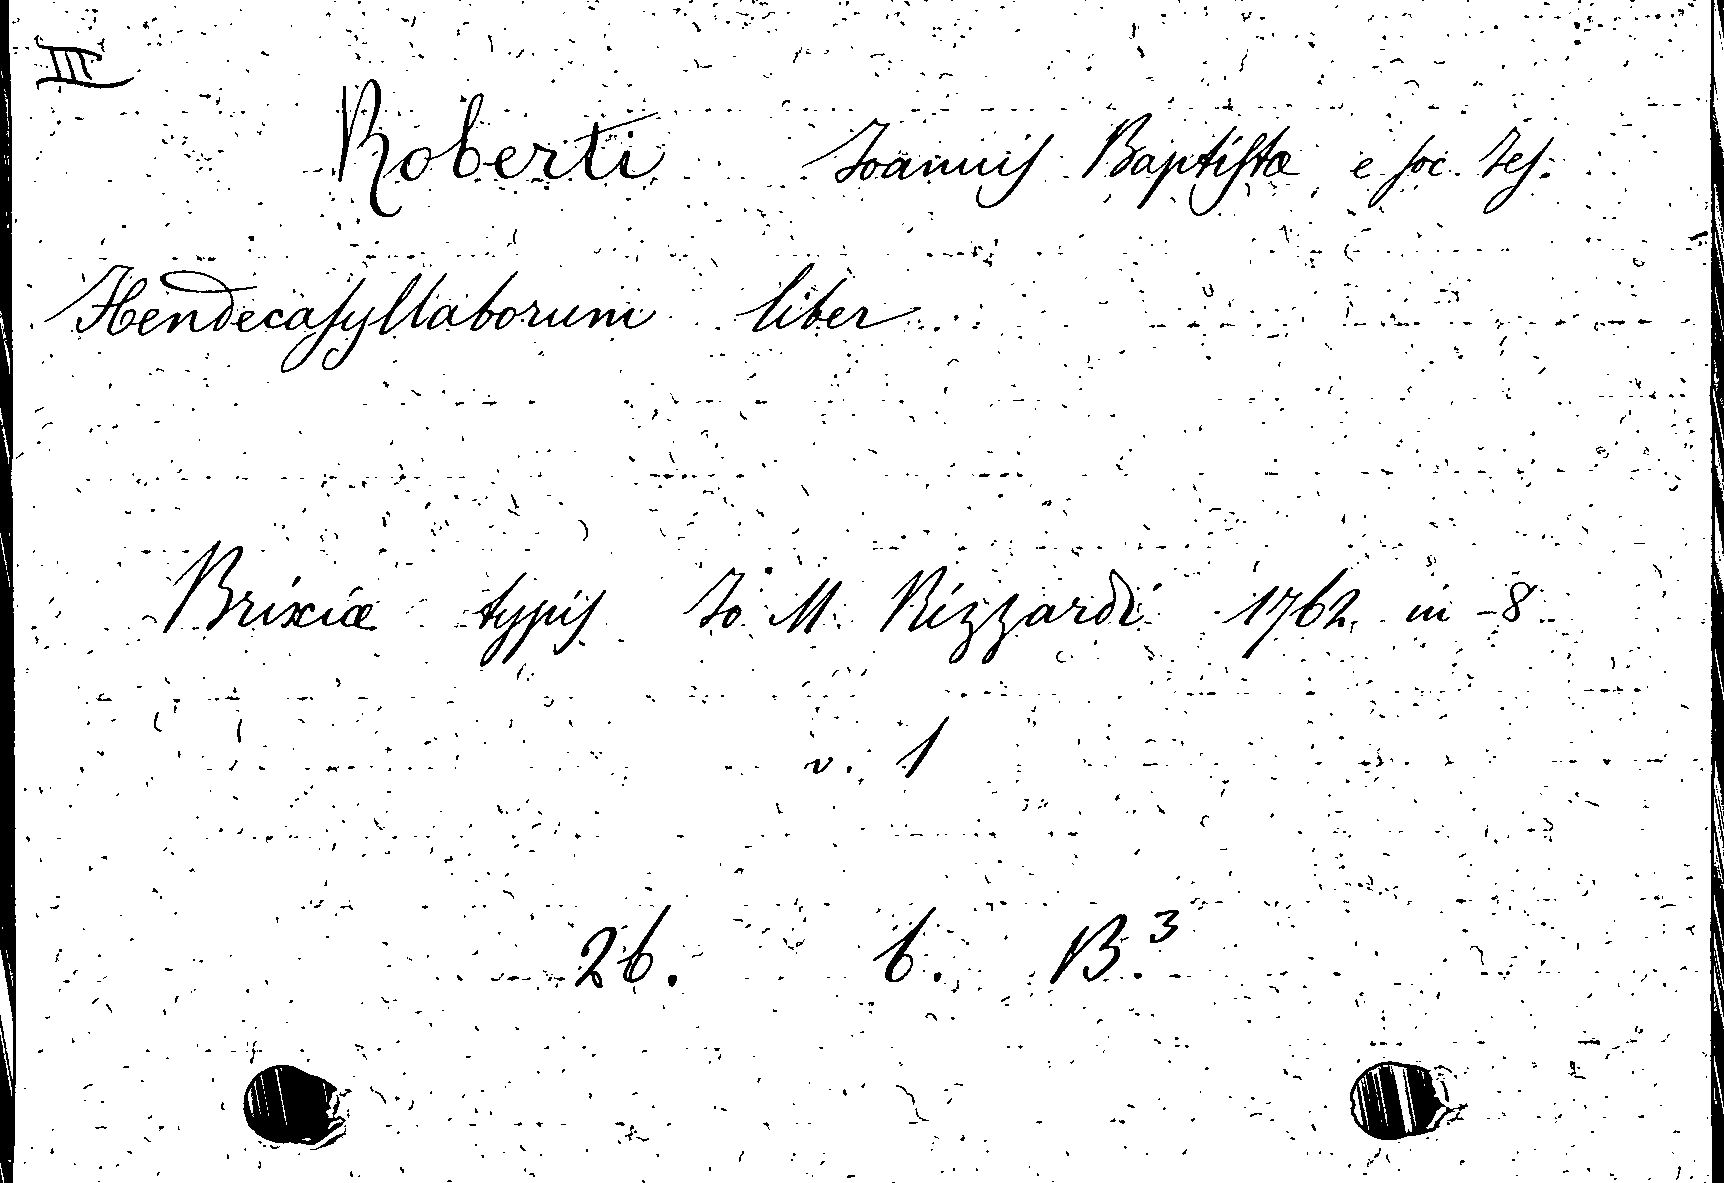 III
Roberti Joannis Baptistæ e soc. Jes.
Hendecasyllaborum liber
Brixiæ typis Jo. M. Rizzardi 1762 in-8
v. 1
26. 6. B.³